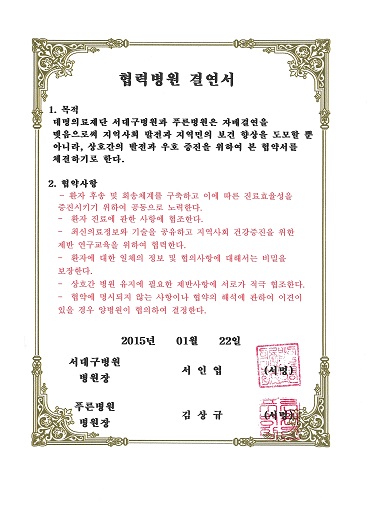 협력병원 결연서
1. 목적
대명의료재단 서대구병원과 푸른병원은 자매결연을
맺음으로써 지역사회 발전과 지역민의 보건 향상을 도모할 뿐
아니라, 상호간의 발전과 우호 증진을 위하여 본 협약서를
체결하기로 한다.
2. 협약사항
- 환자 후송 및 회송체계를 구축하고 이에 따른 진료효율성을
증진시키기 위하여 공동으로 노력한다.
- 환자 진료에 관한 사항에 협조한다.
- 최신의료정보와 기술을 공유하고 지역사회 건강증진을 위한
제반 연구교육을 위하여 협력한다.
- 환자에 대한 일체의 정보 및 협의사항에 대해서는 비밀을
보장한다.
- 상호간 병원 유지에 필요한 제반사항에 서로가 적극 협조한다.
- 협약에 명시되지 않는 사항이나 협약의 해석에 관하여 이견이
있을 경우 양병원이 협의하여 결정한다.
2015년 01월 22일
서대구병원
병원장 서 인 엽 (서명)
푸른병원
병원장 김 상 규 (서명)